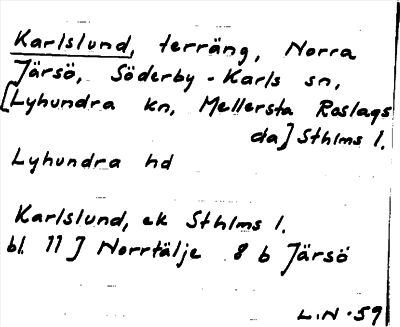 Karlslund, terräng, Norra
Järsö, Söderby-Karls sn,
[Lyhundra kn, Mellersta Roslags
da] Sthlms l.
Lyhundra hd
Karlslund, ek Sthlms l.
bl. 11 J Norrtälje 8 b Järsö
L.N -59